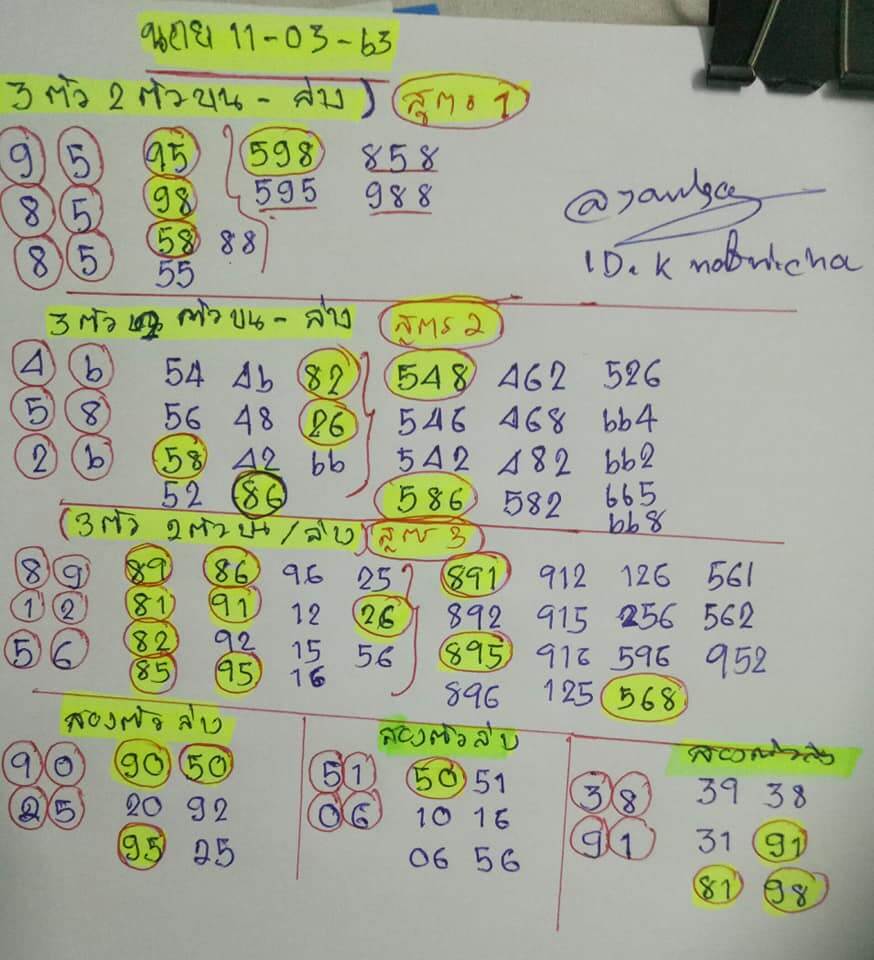 ฮานอย 11-03-63
3 ตัว 2 ตัวบน - ล่าง สูตร 1
9 5 95 598 858
8 5 98 595 988
8 5 58 88
55
ID. K nobnicha
3 ตัว 2 ตัวบน - ล่าง สูตร 2
4 6 54 46 82 548 462 526
5 8 56 48 26 546 468 664
2 6 58 42 66 542 482 662
52 86 586 582 665
668
3 ตัว 2 ตัวบน/ล่าง สูตร 3
8 9 89 86 96 25 891 912 126 561
1 2 81 91 12 26 892 915 256 562
5 6 82 92 15 56 895 916 596 952
85 95 16 896 125 568
สองตัวล่าง
9 0 90 50
2 5 20 92
95 25
สองตัวล่าง
5 1 50 51
0 6 10 16
06 56
สองตัวล่าง
3 8 39 38
9 1 31 91
81 98